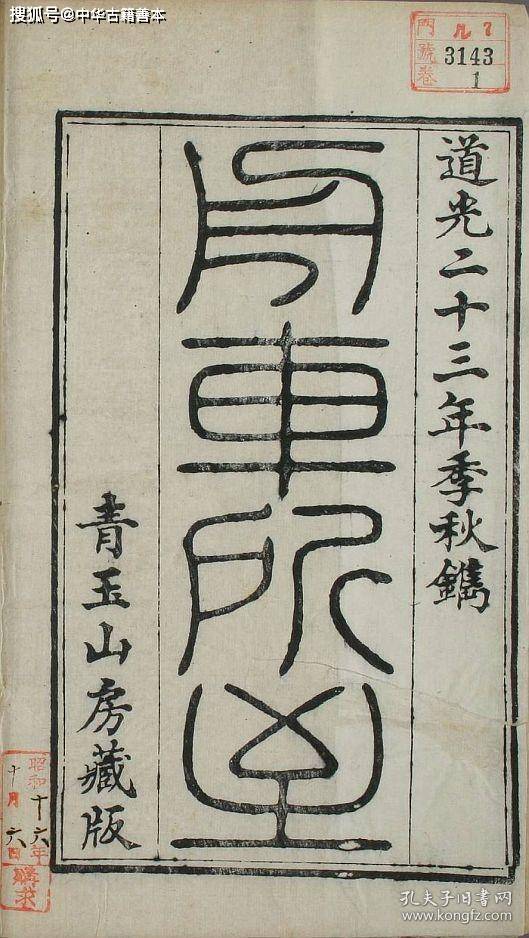 搜狐号@中华古籍善本
門 九 7
號 3143
卷 1
道光二十三年季秋鐫
舟車所至
青玉山房藏版
昭和十六年
十月六日
購求
孔夫子旧书网
www.kongfz.com